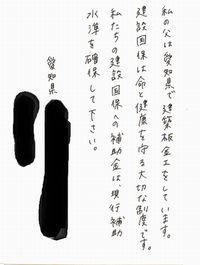 私の父は愛知県で建築板金工をしています。
建設国保は命と健康を守る大切な制度です。
私たちの建設国保への補助金は、現行補助
水準を確保して下さい。
愛知県